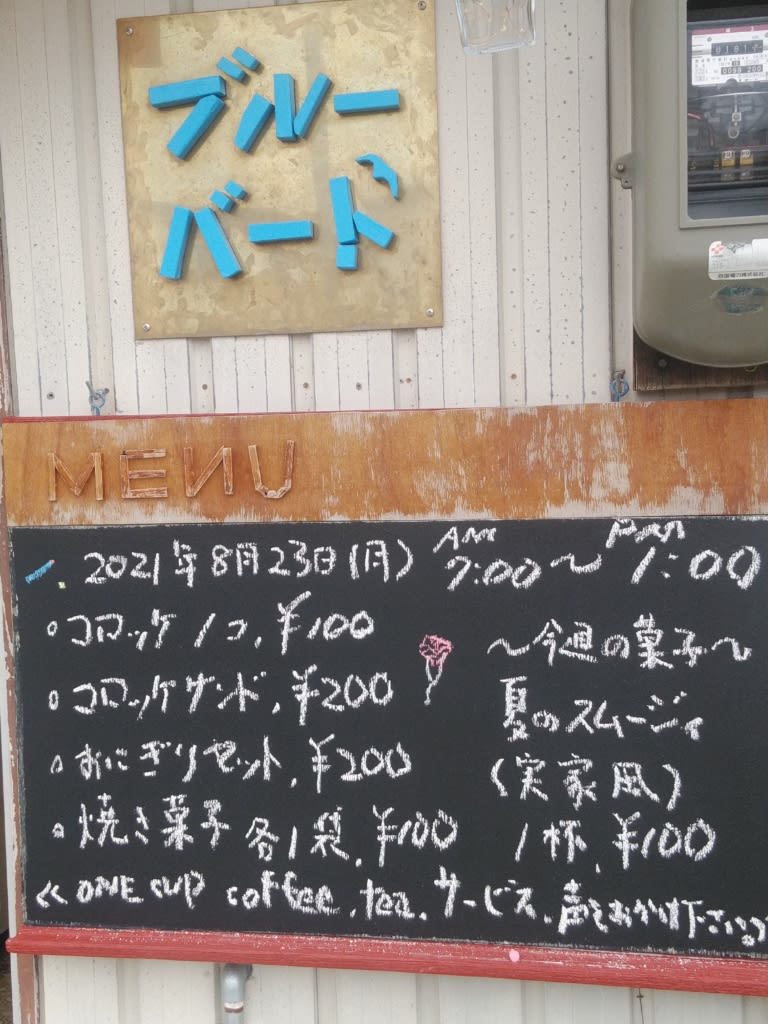 ブルー
バード
MENU
2021年8月23日(月) AM 7:00〜PM 1:00
コロッケ1コ、¥100
コロッケサンド、¥200
おにぎりセット、¥200
焼き菓子 各1袋、¥100
〜今週の菓子〜
夏のスムージィ
(実家風)
1杯、¥100
≪ONE CUP coffee、tea、サービス、声をおかけ下さい。
四国電力株式会社